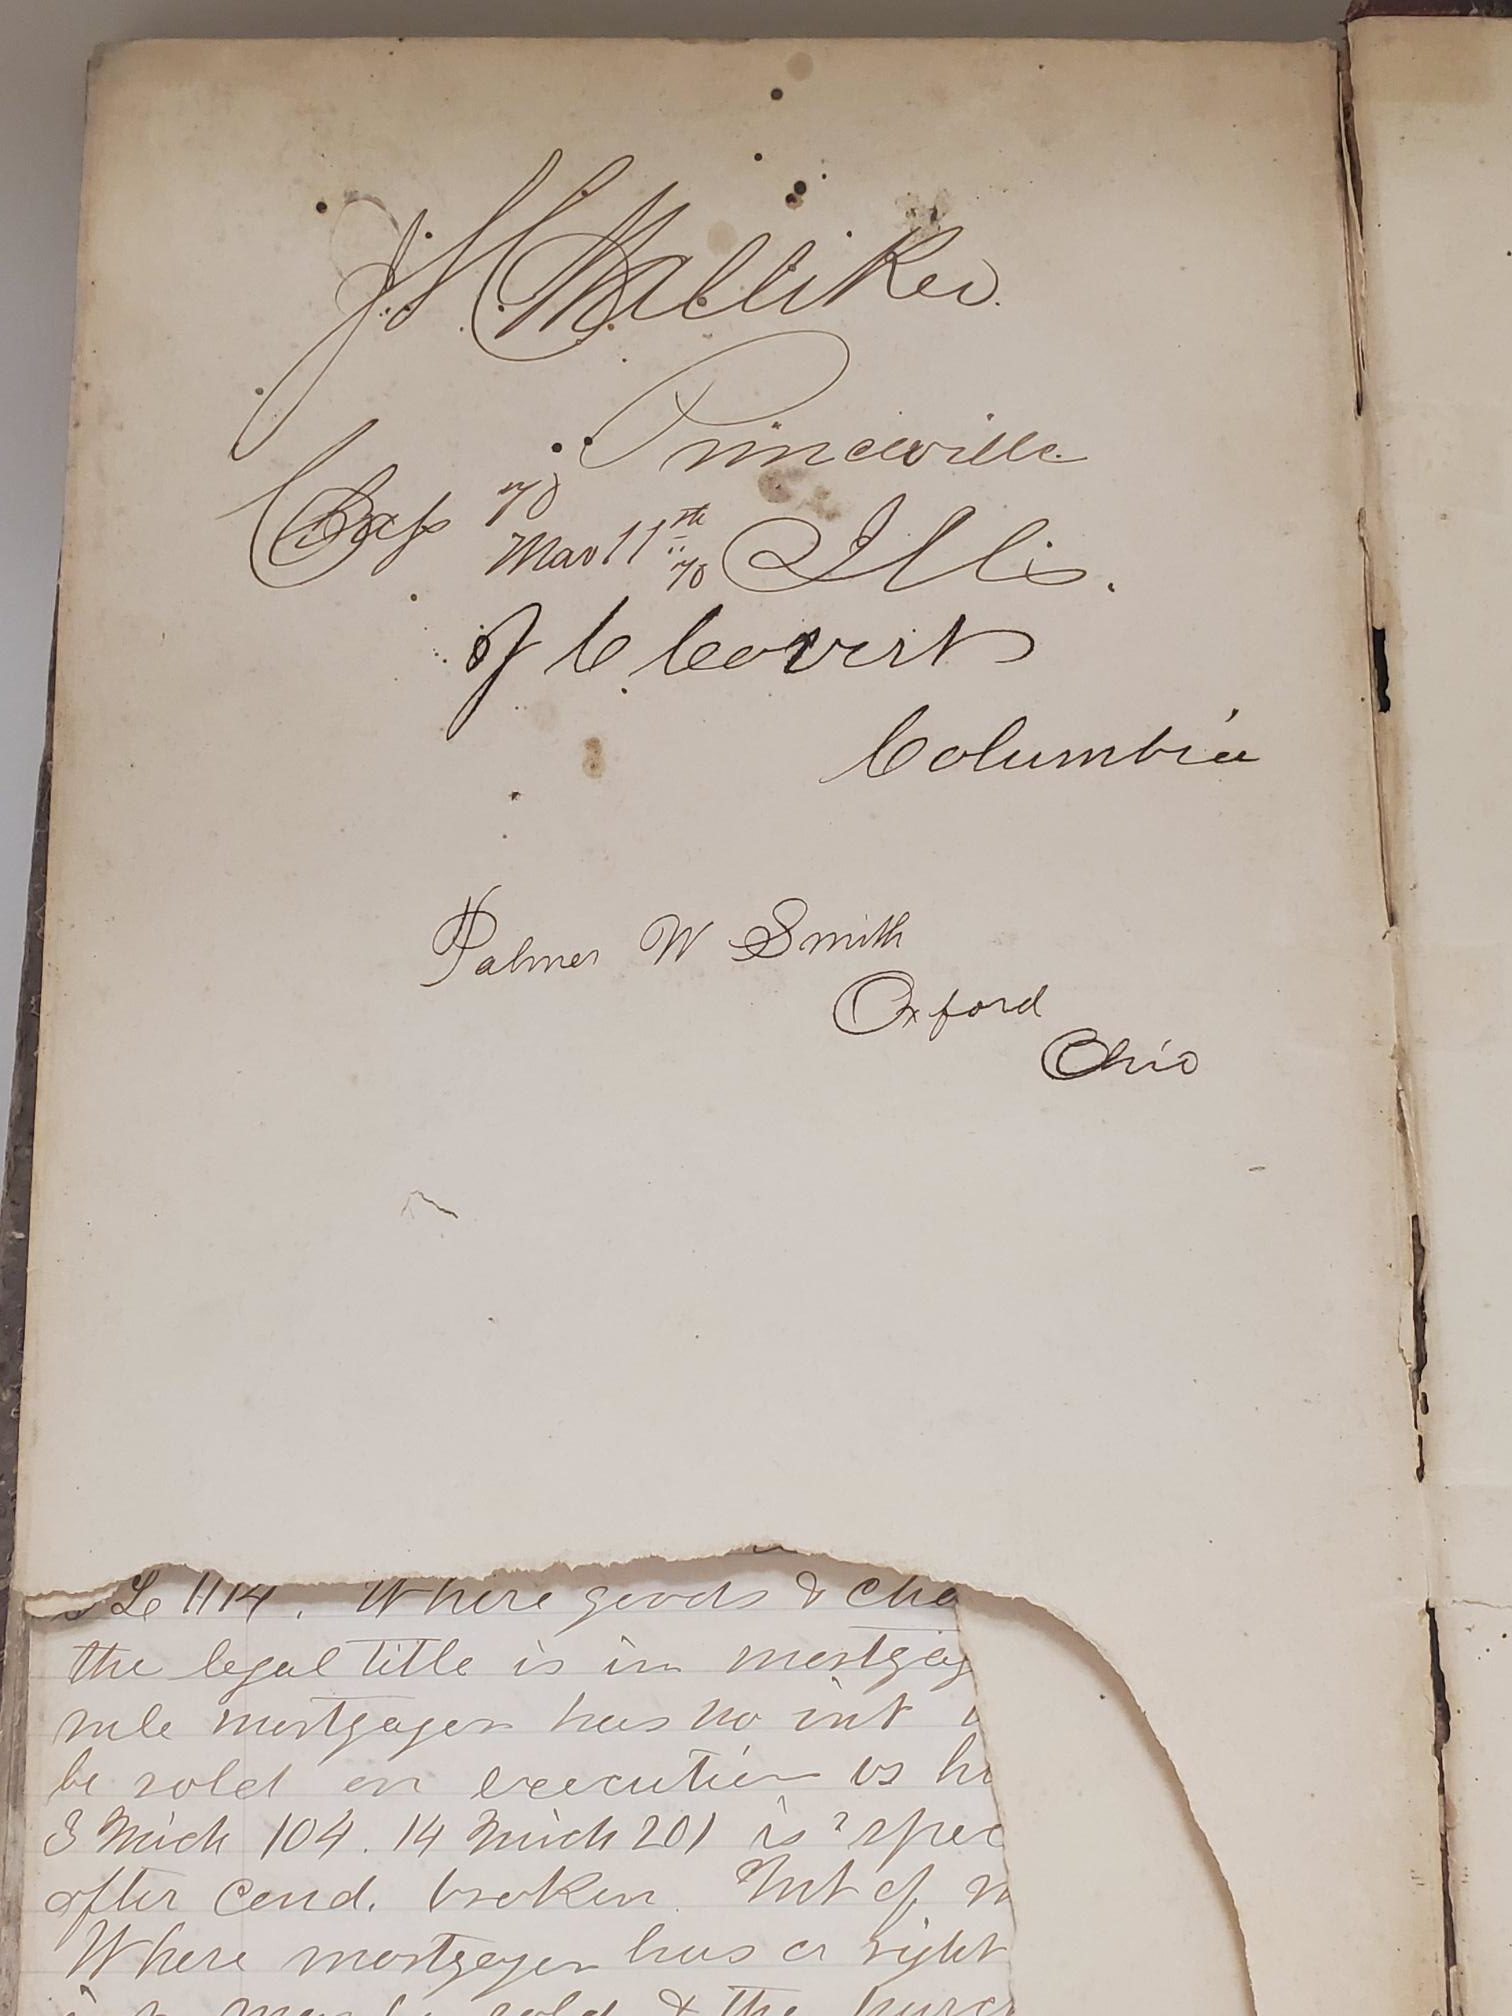 Princeville
70
Mar 11th 70 Ills.
J C Covert
Columbia
Palmer W Smith
Oxford
Ohio
Le 114. Where goods & cha
the legal title is in mortgag
rule mortgagor has no int
be sold on execution vs hi
3 Mich 104. 14 Mich 201 is ? spec
after cond. broken. Int of m
Where mortgagor has a right
may be sold & the purc